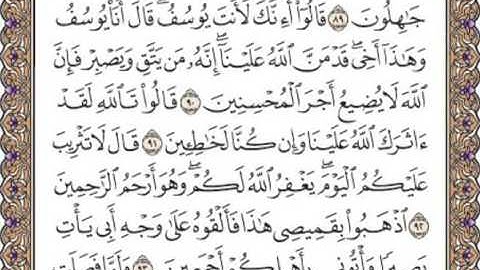 جَٰهِلُونَ ٨٩ قَالُوٓا۟ أَءِنَّكَ لَأَنتَ يُوسُفُ ۖ قَالَ أَنَا۠ يُوسُفُ
وَهَٰذَآ أَخِى ۖ قَدْ مَنَّ ٱللَّهُ عَلَيْنَآ ۖ إِنَّهُۥ مَن يَتَّقِ وَيَصْبِرْ فَإِنَّ
ٱللَّهَ لَا يُضِيعُ أَجْرَ ٱلْمُحْسِنِينَ ٩٠ قَالُوا۟ تَٱللَّهِ لَقَدْ
ءَاثَرَكَ ٱللَّهُ عَلَيْنَا وَإِن كُنَّا لَخَٰطِـِٔينَ ٩١ قَالَ لَا تَثْرِيبَ
عَلَيْكُمُ ٱلْيَوْمَ ۖ يَغْفِرُ ٱللَّهُ لَكُمْ ۖ وَهُوَ أَرْحَمُ ٱلرَّٰحِمِينَ
٩٢ ٱذْهَبُوا۟ بِقَمِيصِى هَٰذَا فَأَلْقُوهُ عَلَىٰ وَجْهِ أَبِى يَأْتِ
بَصِيرًا وَأْتُونِى بِأَهْلِكُمْ أَجْمَعِينَ ٩٣ وَلَمَّا فَصَلَتِ